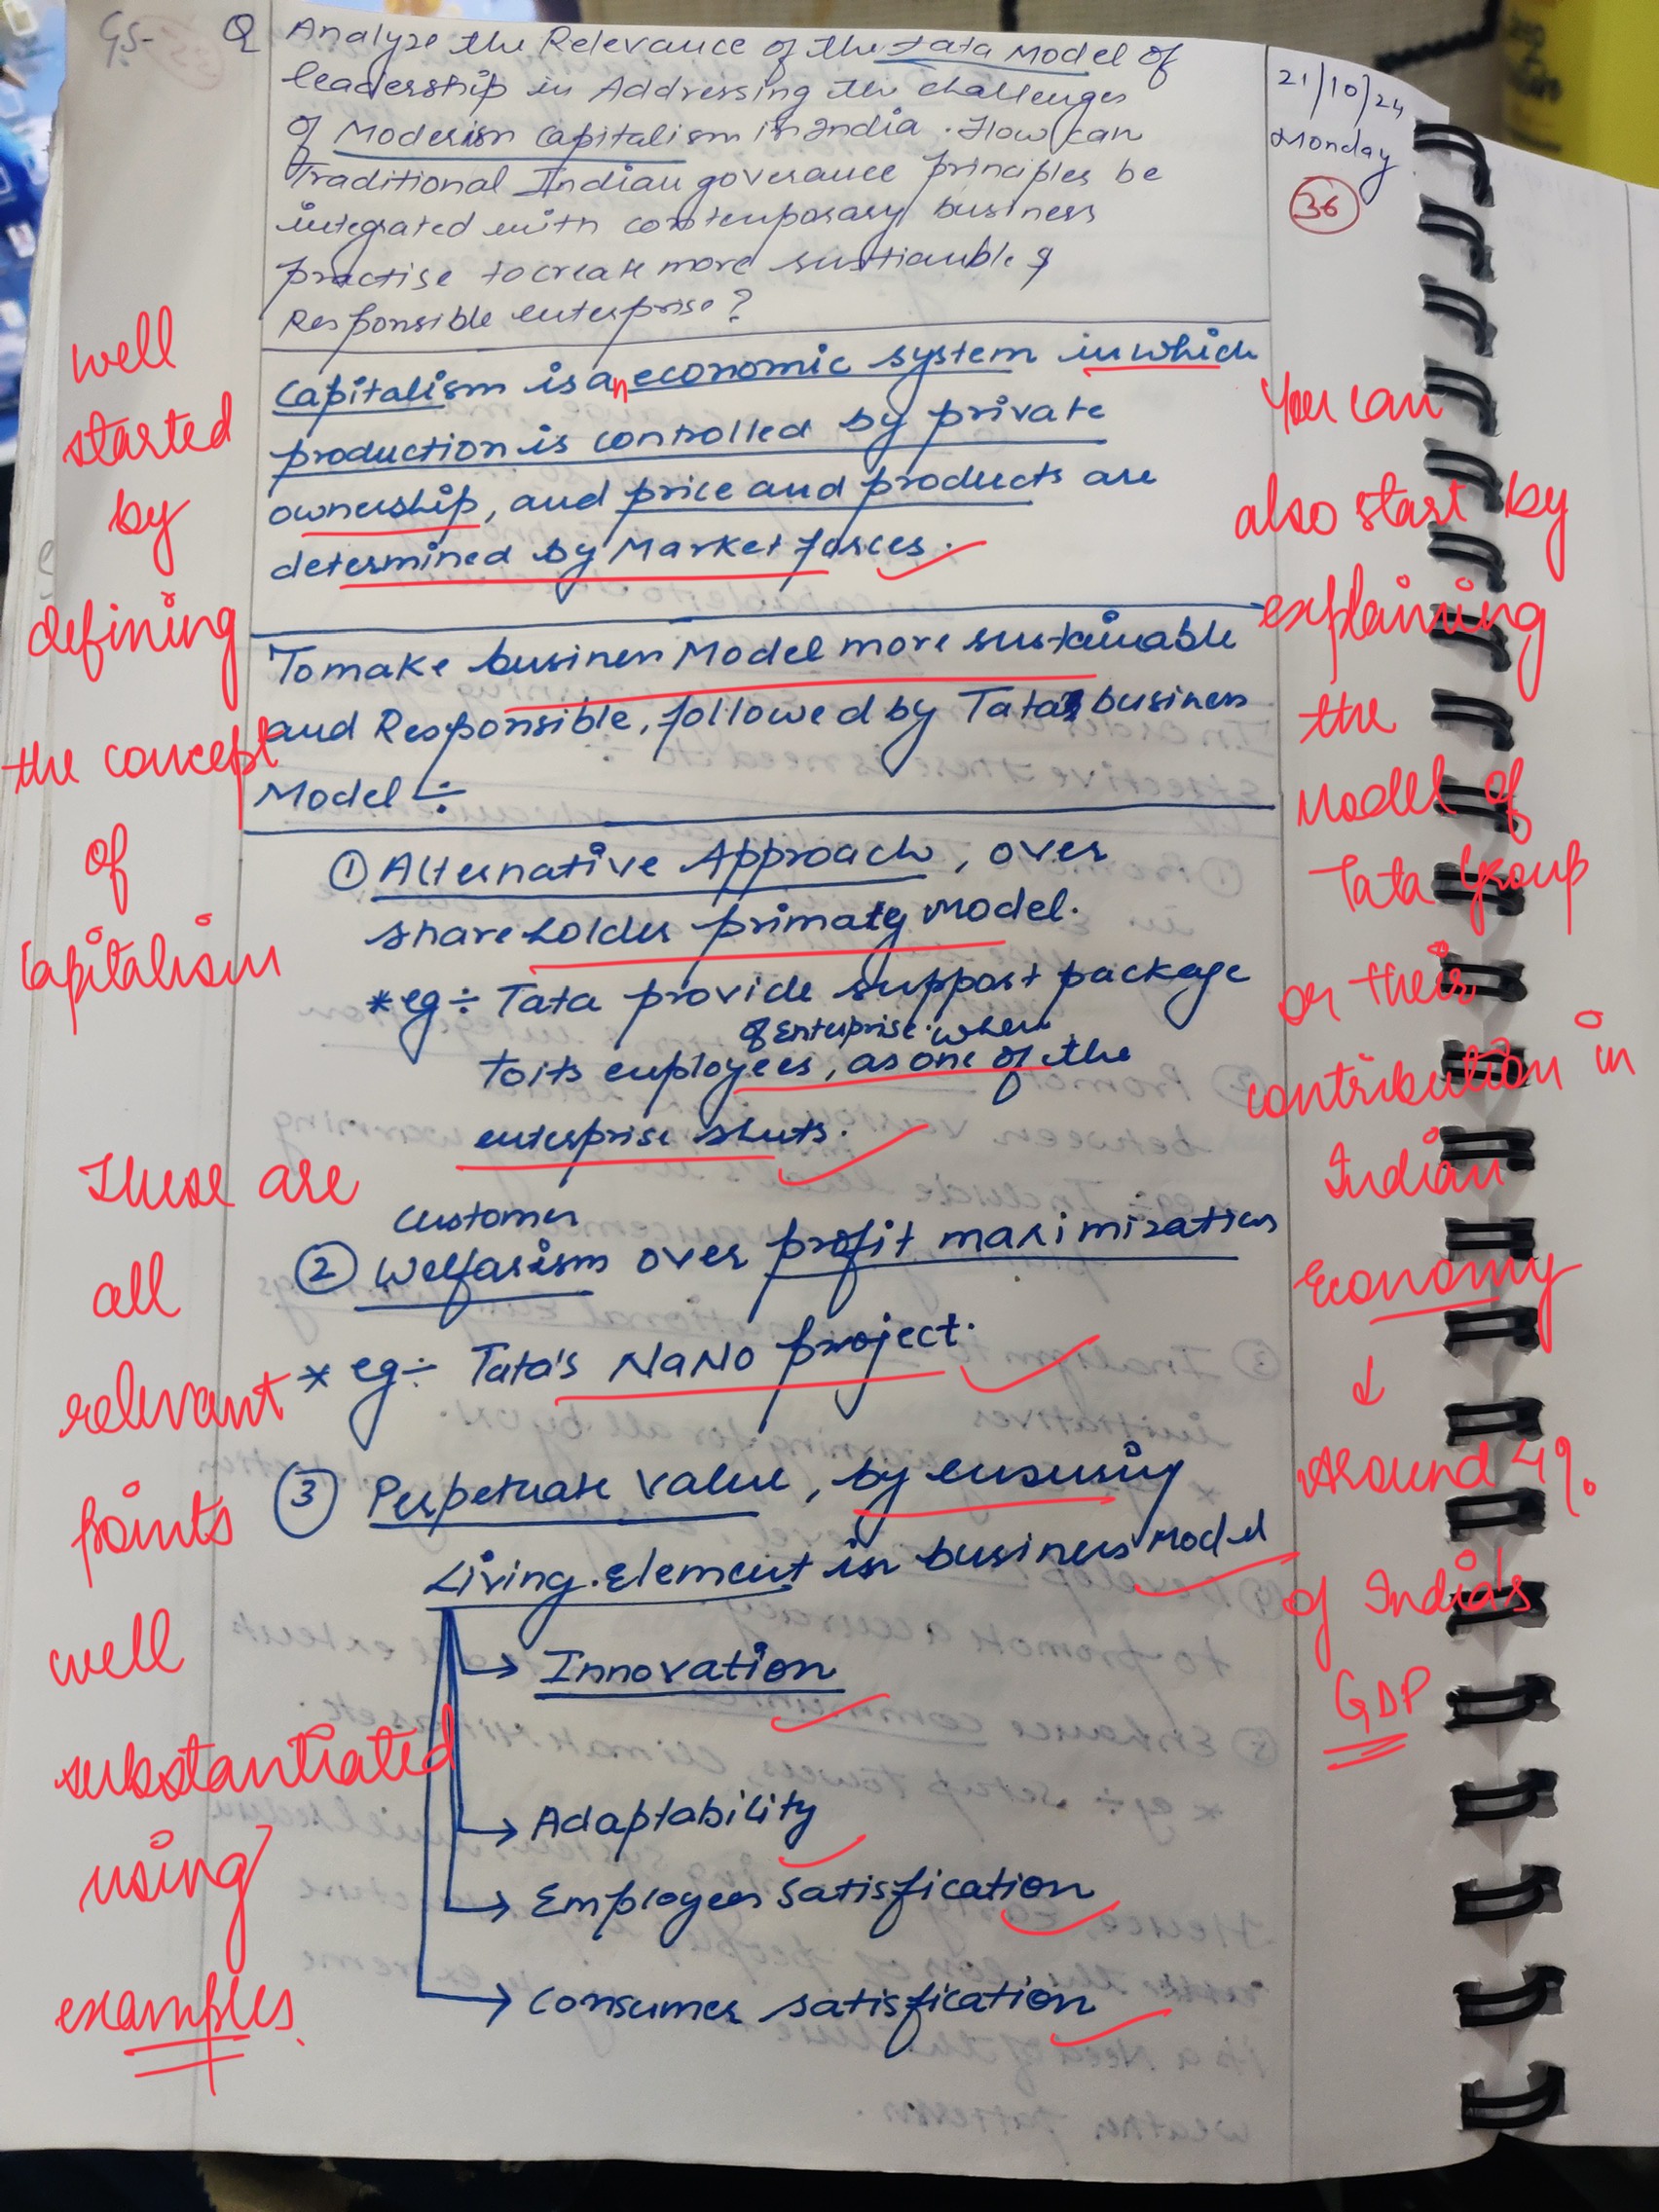 GS-
Q Analyze the Relevance of the Tata Model of
leadership in Addressing the challenges
of Moderisn capitalism in India. How can
Traditional Indian goverance principles be
integrated with contemporary business
practise to create more sustianble &
Responsible enterprise?
21/10/24
Monday
36
Capitalism is an economic system in which
production is controlled by private
ownership, and price and products are
determined by Market forces.
To make business Model more sustainable
and Responsible, followed by Tata's business
Model :-
① Alternative Approach, over
shareholder primacy Model.
* eg ÷ Tata provide support package
of Enterprise where
to its employees, as one of the
enterprise shuts.
Customer
② Welfarism over profit maximization
* eg ÷ Tata's NaNo project.
③ Perpetuate value, by ensuring
Living Element in business Model
→ Innovation
→ Adaptability
→ Employees satisfication
→ Consumer satisfication
well
started
by
defining
the concept
of
Capitalism
These are
all
relevant
points
well
substantiated
using
examples.
You can
also start by
explaining
the
Model of
Tata Group
or their
contribution in
Indian
Economy
↓
Around 4%
of India's
GDP